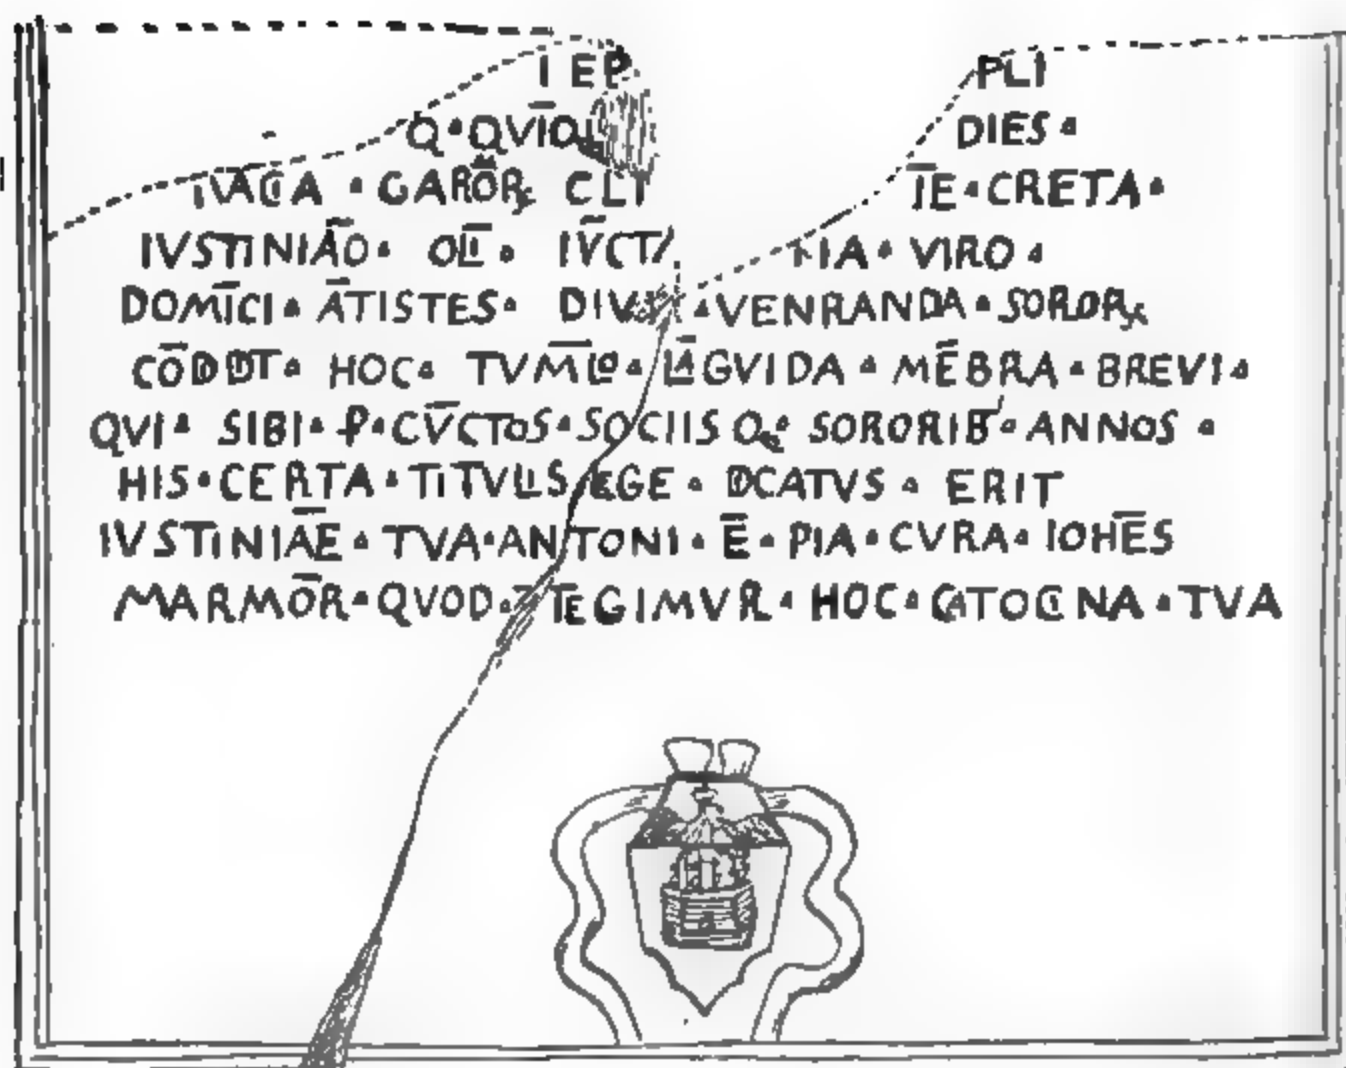 IEP PLI
Q · QVIO DIES ·
IVACIA · GAROR CLI IE · CRETA ·
IVSTINIAO · OLI · IVCT IA · VIRO ·
DOMICI · ATISTES · DIV · VENRANDA · SOROR
CODDT · HOC · TVMLO · LAGVIDA · MEBRA · BREVI ·
QVI · SIBI · P · CVCTOS · SOCIISQ · SORORIB · ANNOS ·
HIS · CERTA · TITVLIS EGE · DCATVS · ERIT
IVSTINIAE · TVA · ANTONI · E · PIA · CVRA · IOHES
MARMOR · QVOD · TEGIMVR · HOC · CATOCINA · TVA